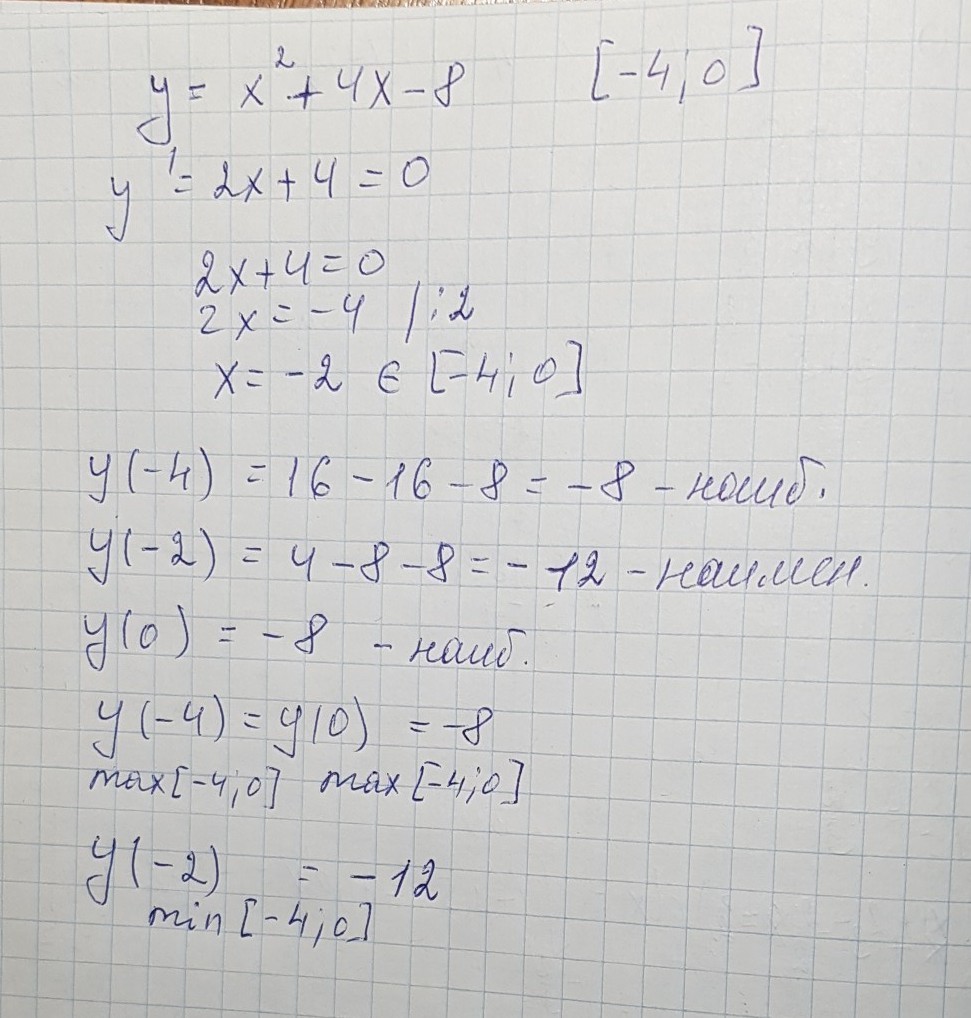 y = x² + 4x - 8 [-4; 0]
y' = 2x + 4 = 0
2x + 4 = 0
2x = -4 | : 2
x = -2 ∈ [-4; 0]
y(-4) = 16 - 16 - 8 = -8 - наиб.
y(-2) = 4 - 8 - 8 = -12 - наимен.
y(0) = -8 - наиб.
y(-4) = y(0) = -8
max [-4; 0] max [-4; 0]
y(-2) = -12
min [-4; 0]